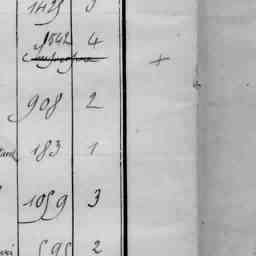 1425 5
1542 4
908 2
183 1
1059 3
595 2